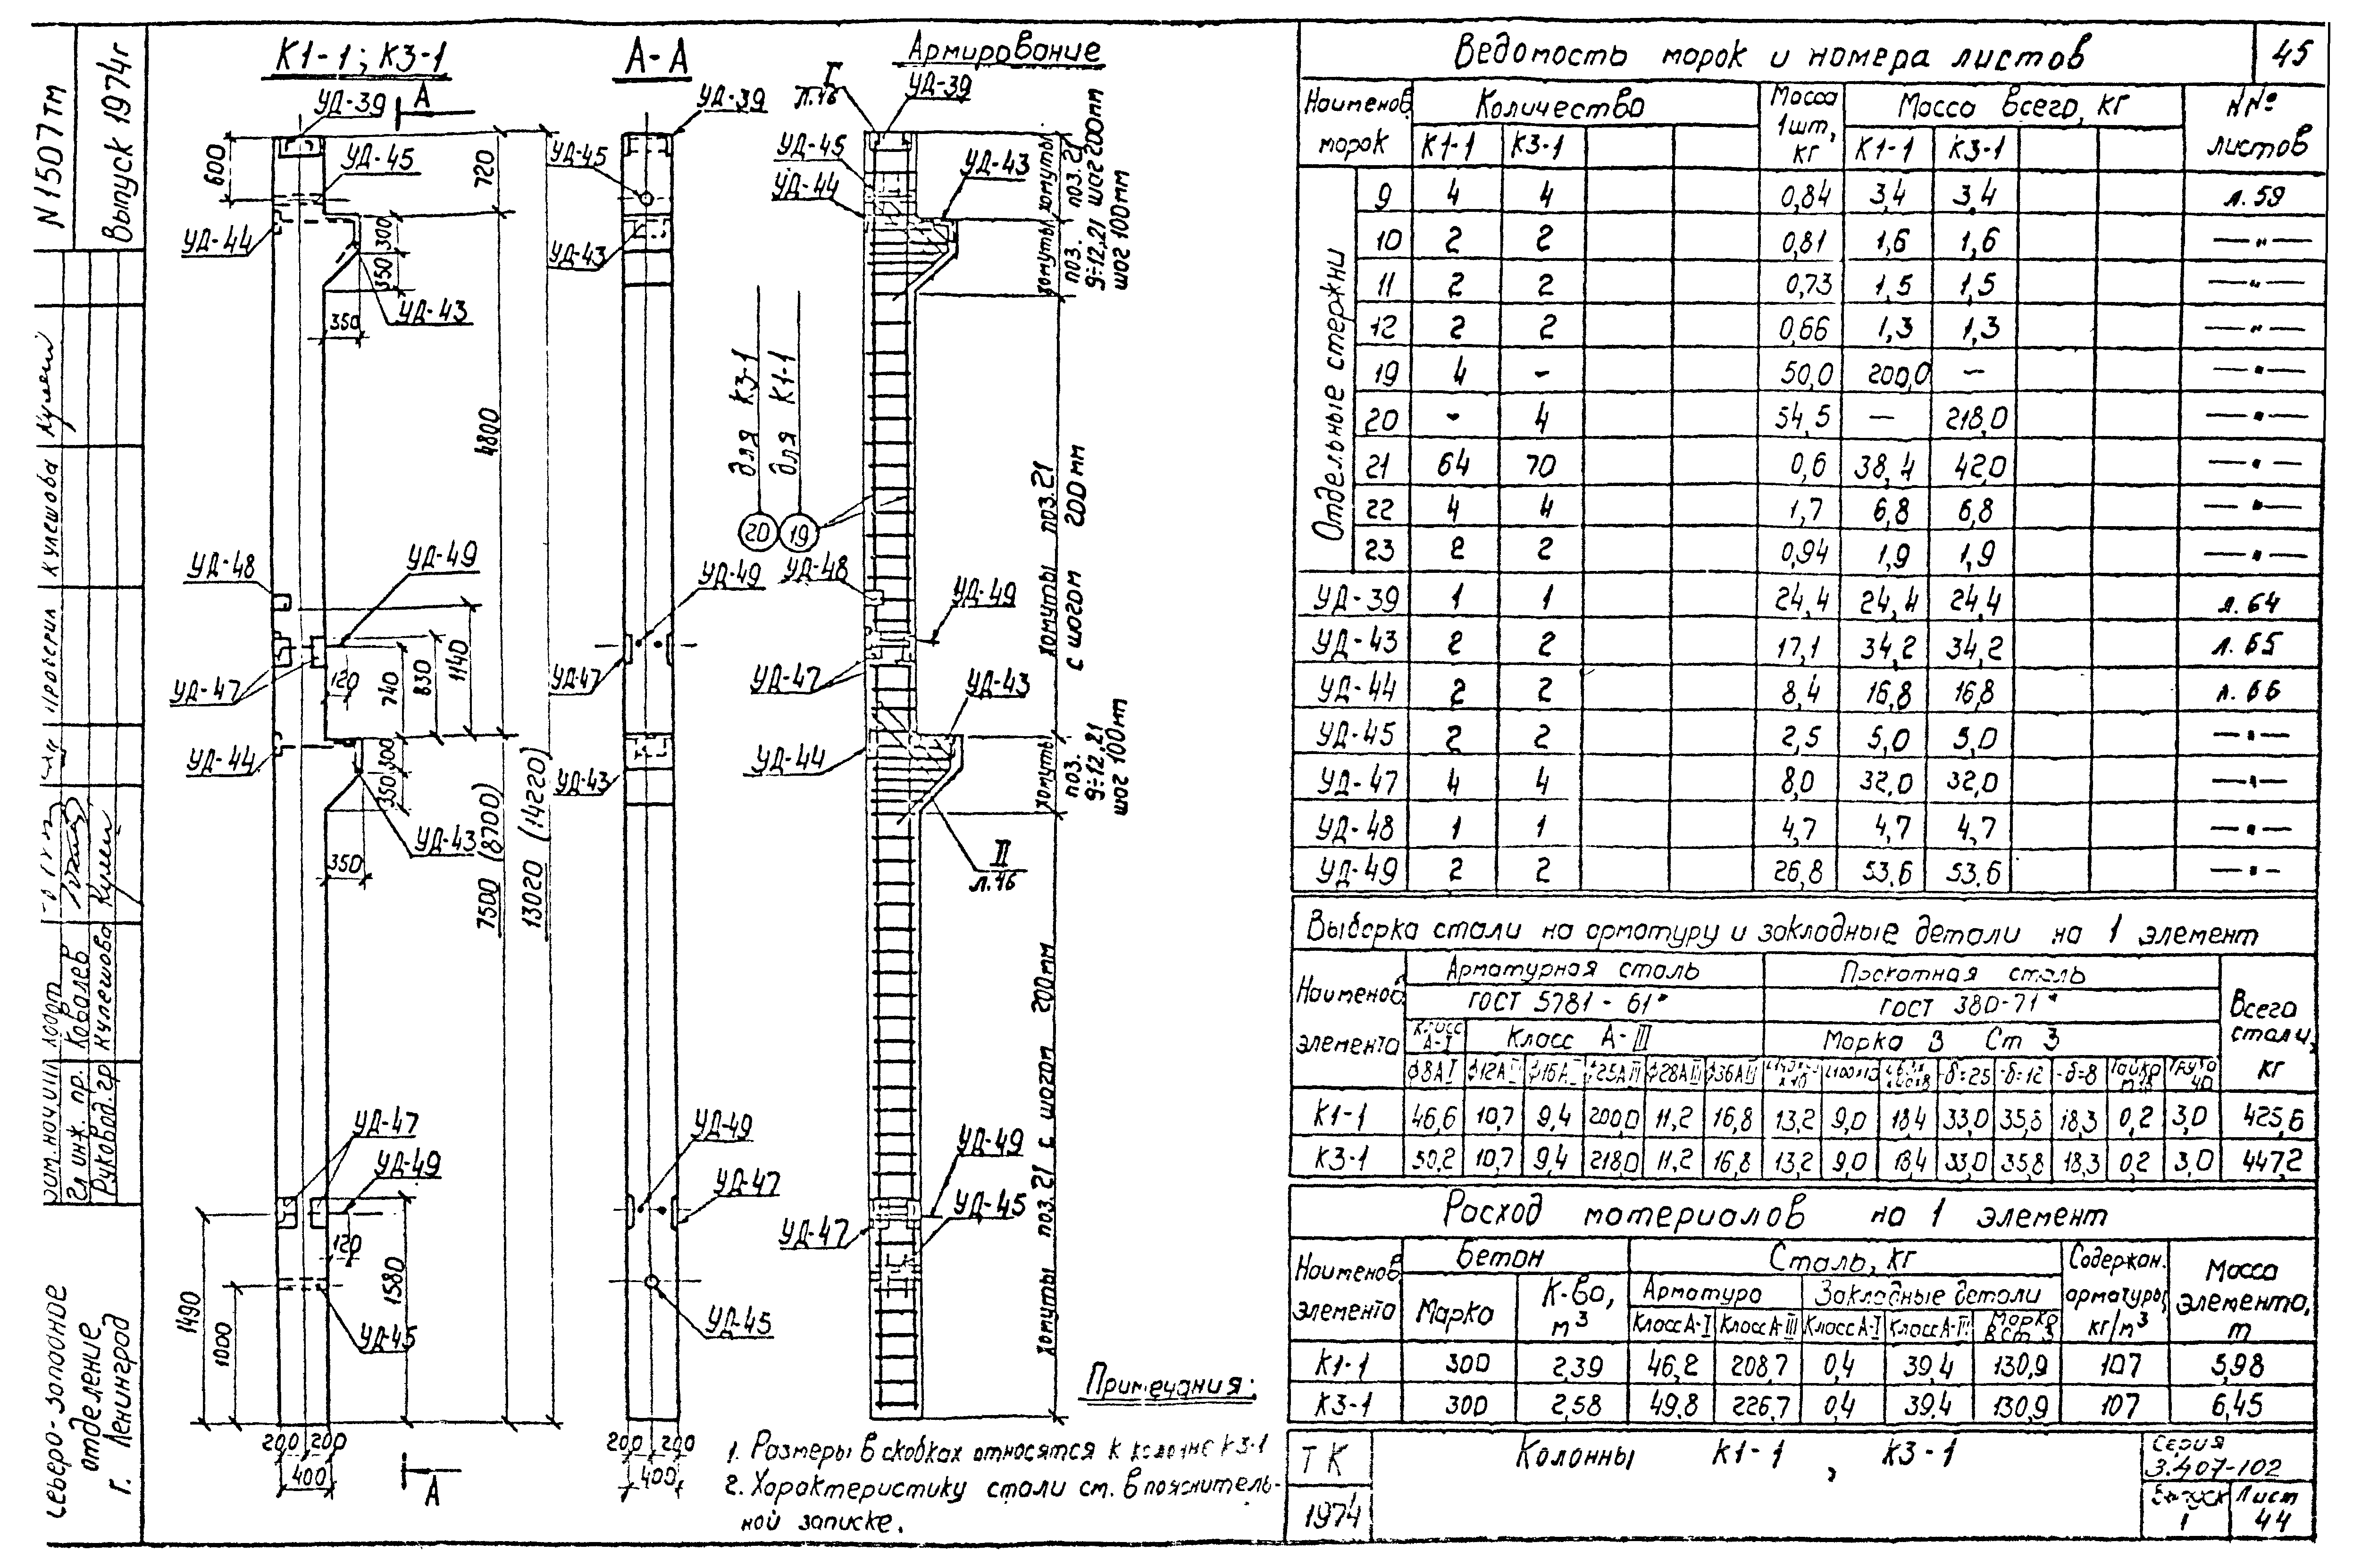 N1507тм
Выпуск 1974г
К1-1; К3-1
А-А
Армирование
УД-39
А
УД-45
600
720
УД-44
300
350
УД-43
350
4800
УД-48
УД-49
УД-47
120
740
830
1140
УД-44
300
350
УД-43
350
7500 (8700)
13020 (14220)
УД-47
УД-49
120
1580
1490
1000
УД-45
200 200
400
А
УД-39
УД-45
УД-43
УД-49
УД-47
УД-43
УД-49
УД-47
УД-45
200 200
400
I
л.46
УД-39
УД-45
УД-44
УД-43
хомуты поз.21 шаг 200мм
хомуты поз. 9÷12,21 шаг 100мм
для К3-1
для К1-1
20
19
УД-48
УД-49
УД-47
УД-43
УД-44
хомуты поз.21 с шагом 200мм
хомуты поз. 9÷12,21 шаг 100мм
II
л.46
УД-49
УД-47
УД-45
хомуты поз.21 с шагом 200мм
Примечания:
1. Размеры в скобках относятся к колонне К3-1
2. Характеристику стали см. в пояснитель-
ной записке.
Ведомость марок и номера листов
45
Наименов. марок
Количество
Масса 1шт, кг
Масса всего, кг
NNº листов
К1-1 К3-1 К1-1 К3-1
Отдельные стержни
9 4 4 0,84 3,4 3,4 л.59
10 2 2 0,81 1,6 1,6 —"—
11 2 2 0,73 1,5 1,5 —"—
12 2 2 0,66 1,3 1,3 —"—
19 4 - 50,0 200,0 — —"—
20 - 4 54,5 — 218,0 —"—
21 64 70 0,6 38,4 42,0 —"—
22 4 4 1,7 6,8 6,8 —"—
23 2 2 0,94 1,9 1,9 —"—
УД-39 1 1 24,4 24,4 24,4 л.64
УД-43 2 2 17,1 34,2 34,2 л.65
УД-44 2 2 8,4 16,8 16,8 л.66
УД-45 2 2 2,5 5,0 5,0 —"—
УД-47 4 4 8,0 32,0 32,0 —"—
УД-48 1 1 4,7 4,7 4,7 —"—
УД-49 2 2 26,8 53,6 53,6 —"—
Выборка стали на арматуру и закладные детали на 1 элемент
Наименов. элемента
Арматурная сталь
ГОСТ 5781-61*
Класс А-I
Класс А-III
Прокатная сталь
ГОСТ 380-71*
Марка В Ст 3
Всего стали, кг
ϕ8АI ϕ12АIII ϕ16АIII ϕ25АIII ϕ28АIII ϕ36АIII -δ=25 -δ=12 -δ=8 Гайка Труба 40
К1-1 46,6 10,7 9,4 200,0 11,2 16,8 13,2 9,0 18,4 33,0 35,8 18,3 0,2 3,0 425,6
К3-1 50,2 10,7 9,4 218,0 11,2 16,8 13,2 9,0 18,4 33,0 35,8 18,3 0,2 3,0 447,2
Расход материалов на 1 элемент
Наименов. элемента
Бетон
Марка
К-во, м³
Сталь, кг
Арматура
Закладные детали
Класс А-I Класс А-III Класс А-I Класс А-III Марка В ст 3
Содержан. арматуры, кг/м³
Масса элемента, т
К1-1 300 2,39 46,2 208,7 0,4 39,4 130,9 107 5,98
К3-1 300 2,58 49,8 226,7 0,4 39,4 130,9 107 6,45
ТК
1974
Колонны К1-1, К3-1
Серия
3.407-102
Выпуск 1
Лист 44
Северо-западное
отделение
г. Ленинград
Гл инж. пр. Ковалев
Руковод. гр Кулешова
Проверил Кулешова